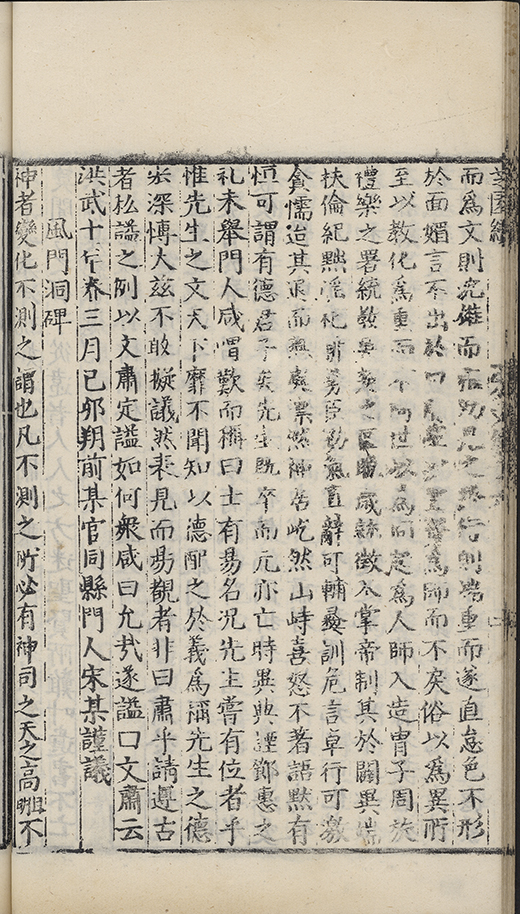 芝園續
而爲文則沉雄而之行則端重而遂直怠色不形
於面媚言不出於口爲師而不戾俗以爲異所
至以教化爲重而不阿世以爲同起爲人師入造冑子周旋
禮樂之署統教之區晚歲徵入掌帝制其於闢異端
扶倫紀黜淫祀氣直辭可輔彝訓危言卓行可激
貪懦迨其退而居屹然山峙喜怒不著語默有
恒可謂有德君子矣先生既卒而元亦亡時異典湮節惠之
礼未舉門人咸喟歎而稱曰士有易名況先生嘗有位者乎
惟先生之文天下靡不聞知以德配之於義爲稱先生之德
宏深博大兹不敢擬議然表見而易觀者非曰肅乎請遵古
者私謚之例以文肅定謚如何衆咸曰允哉遂謚曰文肅云
洪武十年春三月己卯朔前某官同縣門人宋某謹議
風門洞碑
神者變化不測之謂也凡不測之所必有神司之天之高明不